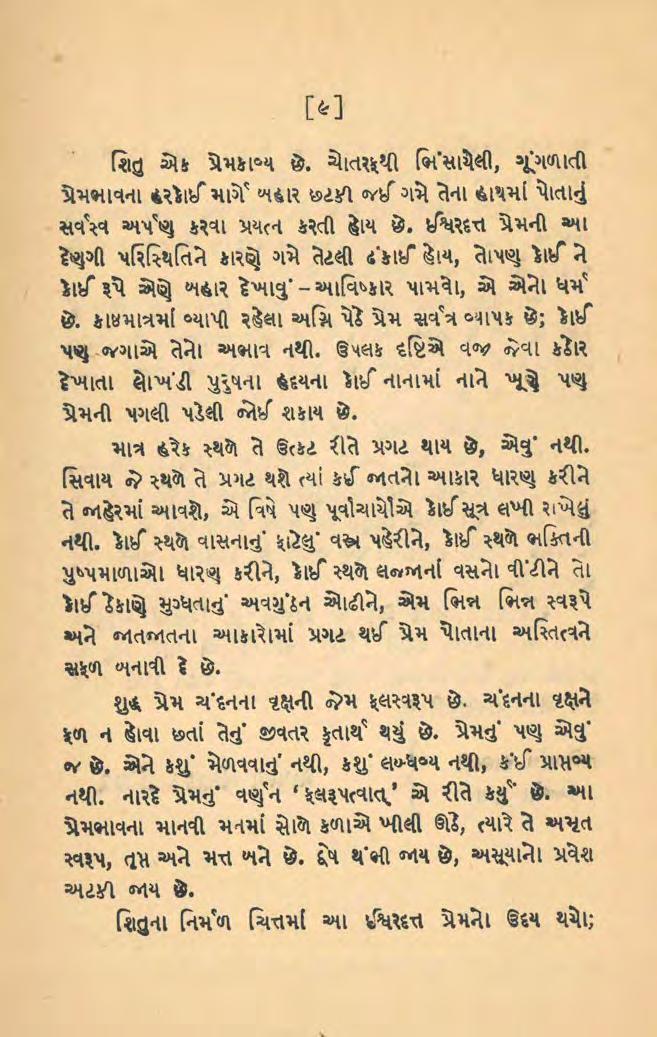 [૯]
શિતુ એક પ્રેમકાવ્ય છે. ચોતરફથી ભિંસાયેલી, ગૂંગળાતી
પ્રેમભાવના હરકોઈ માર્ગે બહાર છટકી જઈ ગમે તેના હાથમાં પોતાનું
સર્વસ્વ અર્પણ કરવા પ્રયત્ન કરતી હોય છે. ઈશ્વરદત્ત પ્રેમની આ
દેણગી પરિસ્થિતિને કારણે ગમે તેટલી ઢંકાઈ હોય, તોપણ કોઈ ને
કોઈ રૂપે એણે બહાર દેખાવું – આવિષ્કાર પામવો, એ એનો ધર્મ
છે. કાષ્ઠમાત્રમાં વ્યાપી રહેલા અગ્નિ પેઠે પ્રેમ સર્વત્ર વ્યાપક છે; કોઈ
પણ જગાએ તેનો અભાવ નથી. ઉપલક દૃષ્ટિએ વજ્ર જેવા કઠોર
દેખાતા લોખંડી પુરુષના હૃદયના કોઈ નાનામાં નાને ખૂણે પણ
પ્રેમની પગલી પડેલી જોઈ શકાય છે.
માત્ર હરેક સ્થળે તે ઉત્કટ રીતે પ્રગટ થાય છે, એવું નથી.
સિવાય જે સ્થળે તે પ્રગટ થશે ત્યાં કઈ જાતનો આકાર ધારણ કરીને
તે જાહેરમાં આવશે, એ વિષે પણ પૂર્વાચાર્યોએ કોઈ સૂત્ર લખી રાખેલું
નથી. કોઈ સ્થળે વાસનાનું ફાટેલું વસ્ત્ર પહેરીને, કોઈ સ્થળે ભક્તિની
પુષ્પમાળાઓ ધારણ કરીને, કોઈ સ્થળે લજ્જાનાં વસનો વીંટીને તો
કોઈ ઠેકાણે મુગ્ધતાનું અવગુંઠન ઓઢીને, એમ ભિન્ન ભિન્ન સ્વરૂપે
અને જાતજાતના આકારોમાં પ્રગટ થઈ પ્રેમ પોતાના અસ્તિત્વને
સફળ બનાવી દે છે.
શુદ્ધ પ્રેમ ચંદનના વૃક્ષની જેમ ફલસ્વરૂપ છે. ચંદનના વૃક્ષને
ફળ ન હોવા છતાં તેનું જીવતર કૃતાર્થ થયું છે. પ્રેમનું પણ એવું
જ છે. એને કશું મેળવવાનું નથી, કશું લબ્ધવ્ય નથી, કંઈ પ્રાપ્તવ્ય
નથી. નારદે પ્રેમનું વર્ણન ‘ફલરૂપત્વાત્’ એ રીતે કર્યું છે. આ
પ્રેમભાવના માનવી મનમાં સોળે કળાએ ખીલી ઊઠે, ત્યારે તે અમૃત
સ્વરૂપ, તૃપ્ત અને મત્ત બને છે. દ્વેષ થંભી જાય છે, અસૂયાનો પ્રવેશ
અટકી જાય છે.
શિતુના નિર્મળ ચિત્તમાં આ ઈશ્વરદત્ત પ્રેમનો ઉદય થયો;